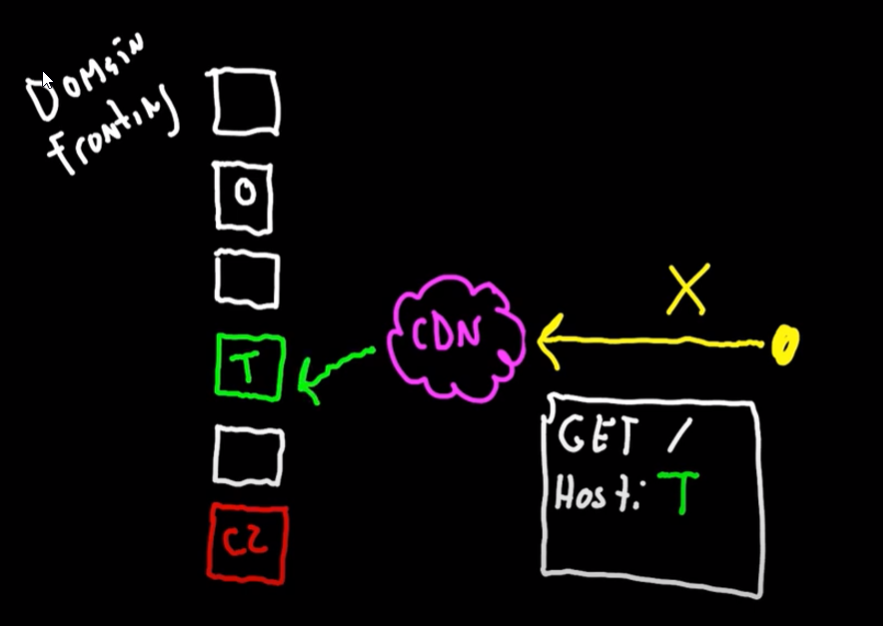 Domain
Fronting
O
T
C2
CDN
X
GET /
Host: T